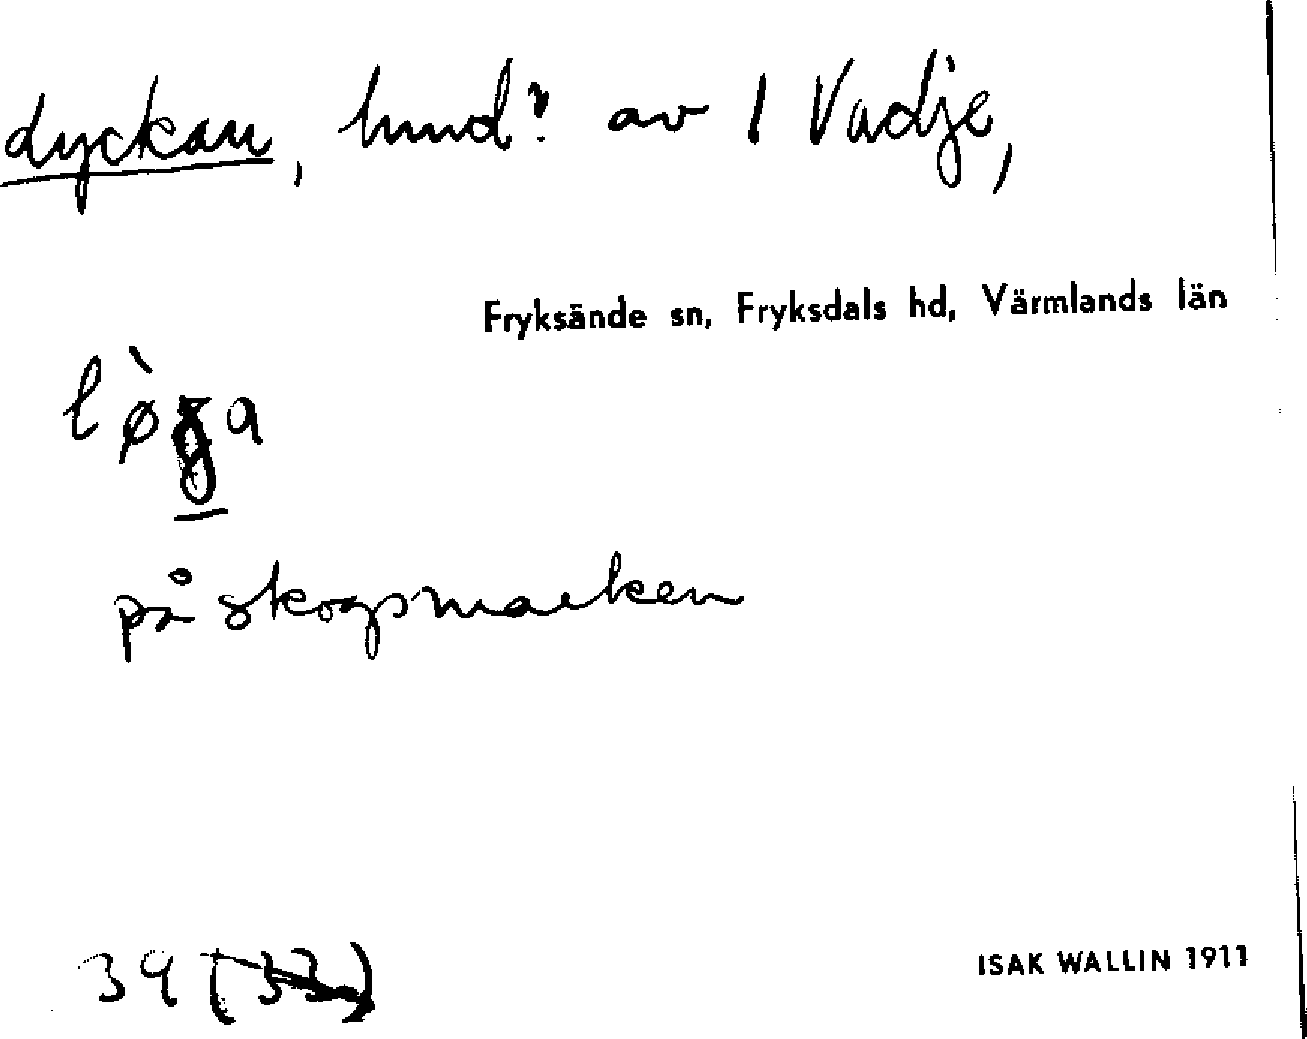 dyckan, hmd? av 1 Vadje,
Fryksände sn, Fryksdals hd, Värmlands län
lø̀ga
på skogsmarken
39 (33)
ISAK WALLIN 1911